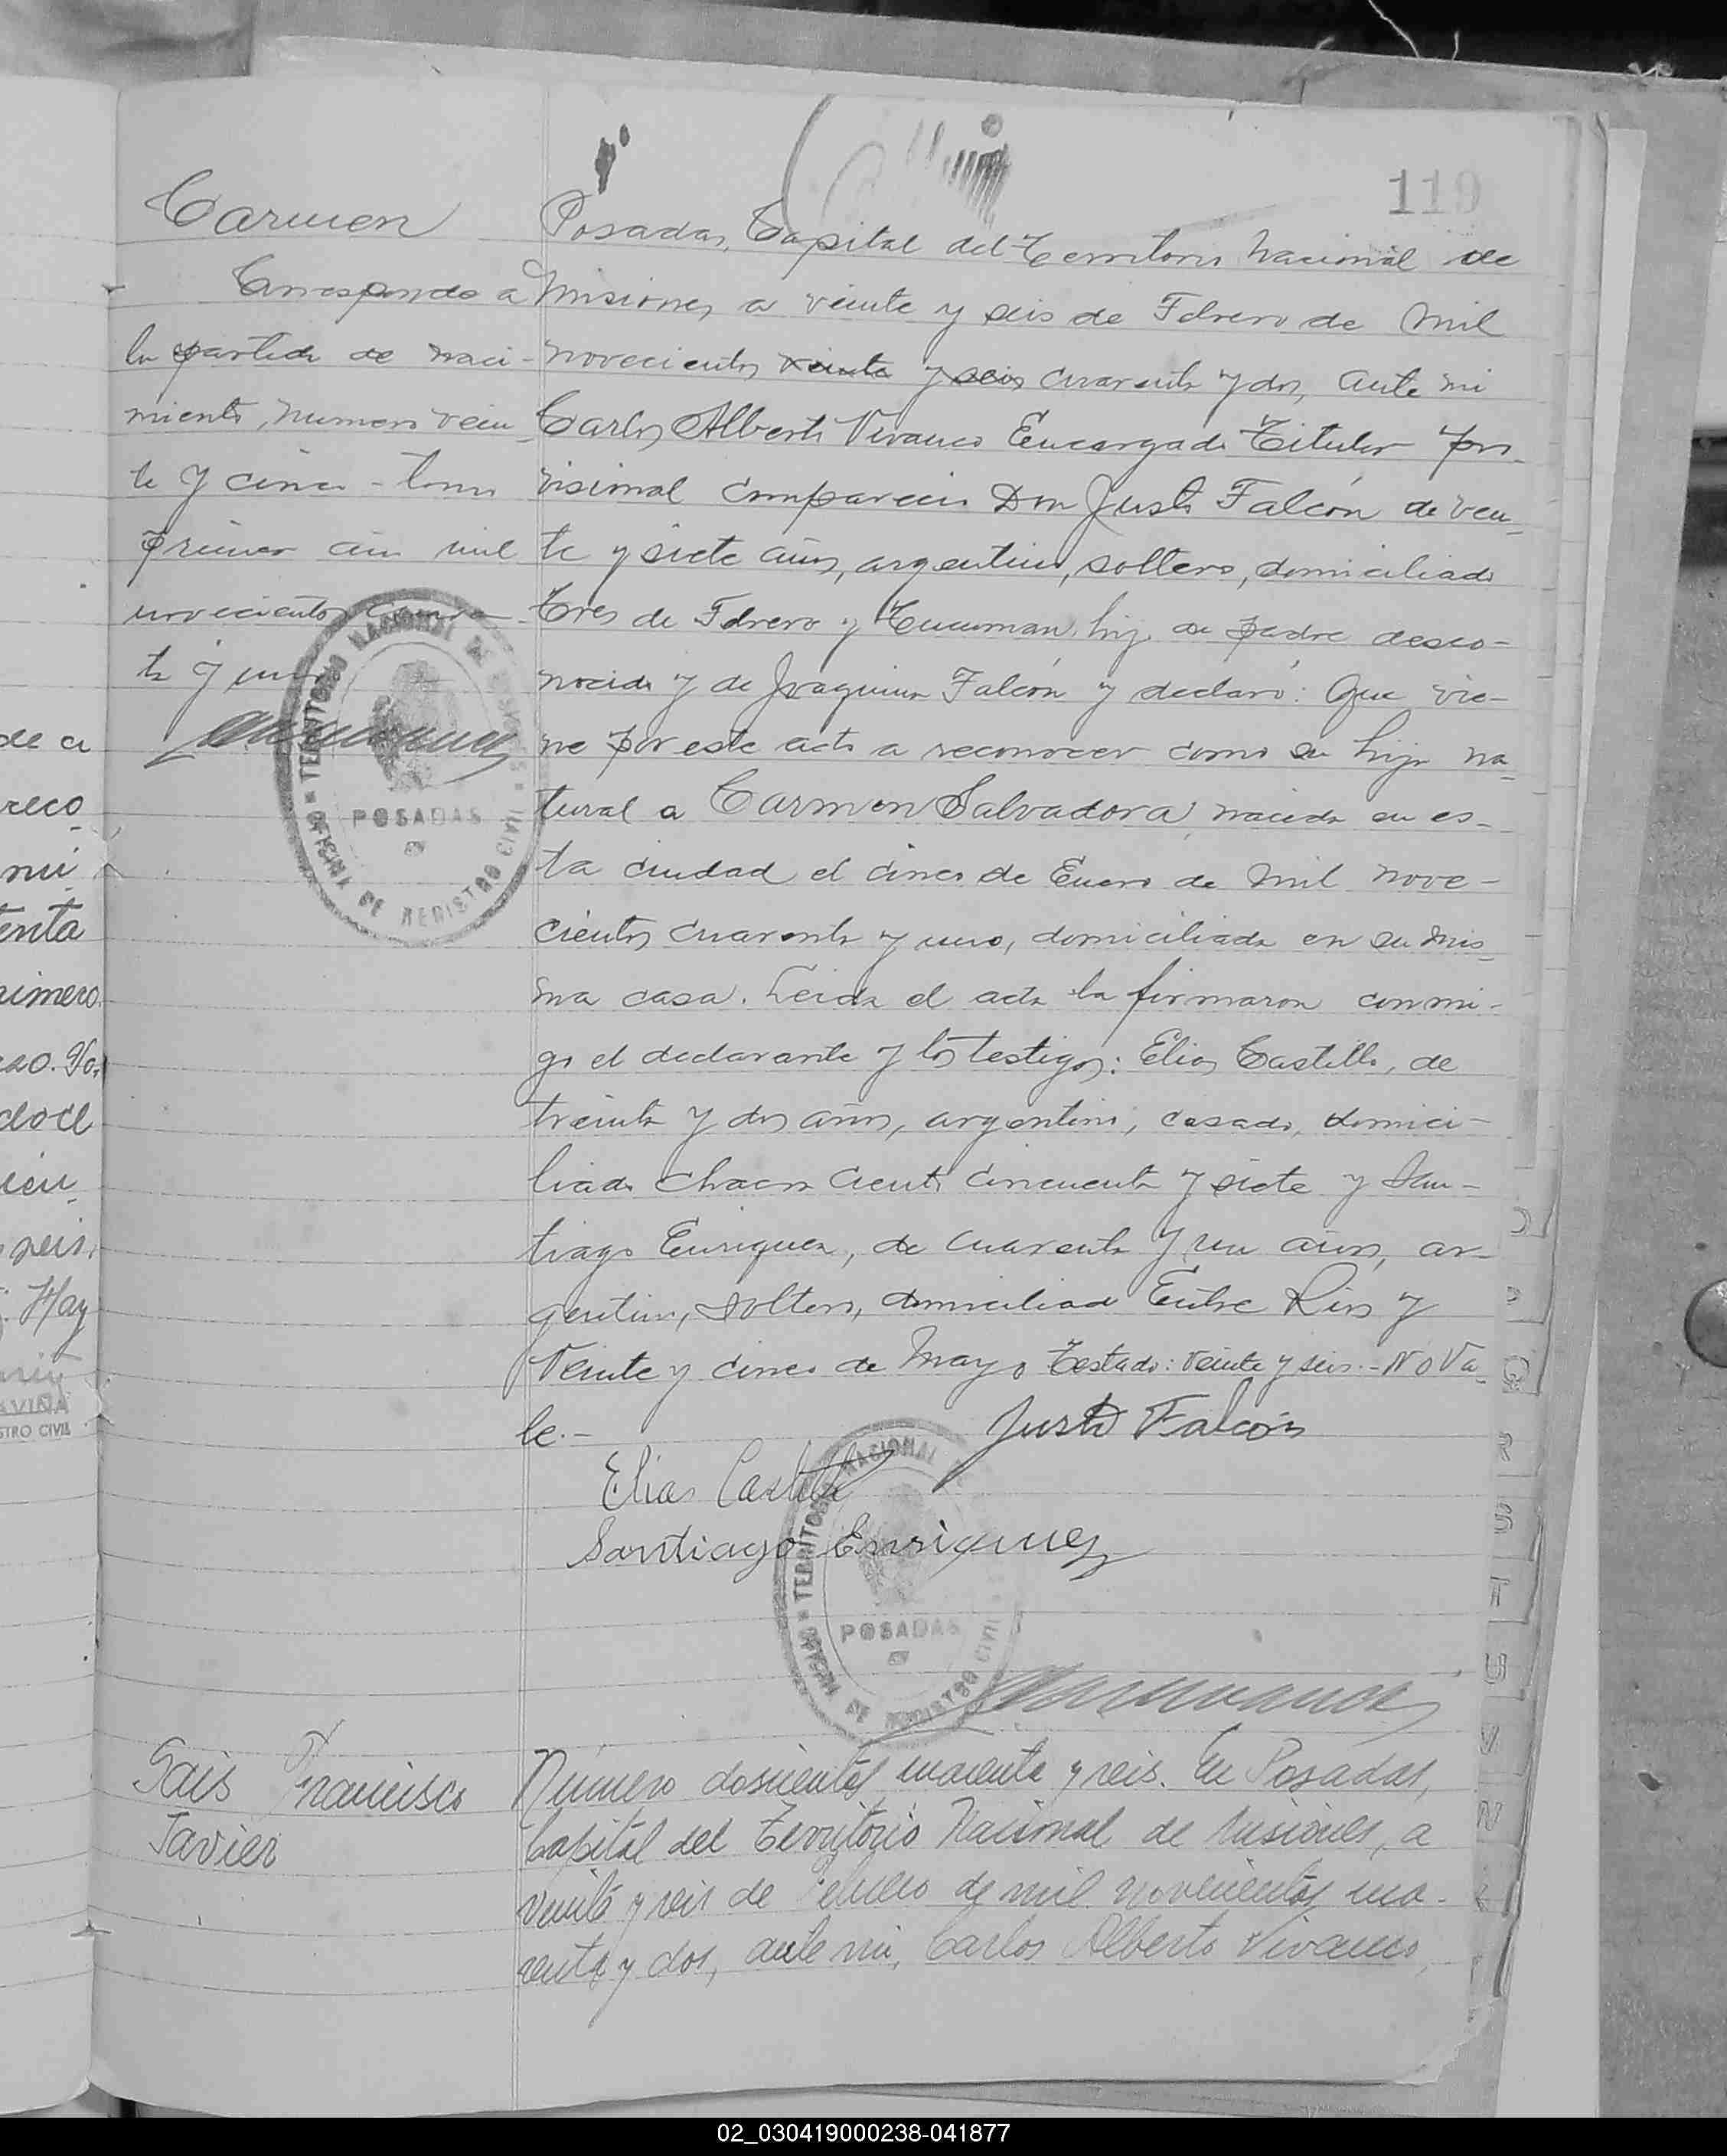 119
Carmen
Corresponde a
la partida de naci-
miento, numero vein-
te y cinco - tomo
primero año mil
novecientos cuaren-
ta y uno
TERRITORIO NACIONAL DE MISIONES
POSADAS
OFICINA DE REGISTRO CIVIL
Posadas, Capital del Territorio Nacional de
Misiones, a veinte y seis de Febrero de mil
novecientos veinte y seis cuarenta y dos, ante mi
Carlos Alberto Vivanco Encargado Titular pro-
visional compareció Don Justo Falcón de vein-
te y siete años, argentino, soltero, domiciliado
Tres de Febrero y Tucuman, hijo de padre desco-
nocido y de Joaquina Falcón y declaró: Que vie-
ne por este acto a reconocer como su hija na-
tural a Carmen Salvadora, nacida en es-
ta ciudad el cinco de Enero de mil nove-
cientos cuarenta y uno, domiciliada en su mis-
ma casa. Leida el acta la firmaron conmi-
go el declarante y los testigos: Elias Castillo, de
treinta y dos años, argentino, casado, domici-
liado chacra ciento cincuenta y siete y San-
tiago Enriquez, de cuarenta y un años, ar-
gentino, soltero, domiciliado Entre Rios y
Veinte y cinco de Mayo Testado: veinte y seis.- No Va-
le.-
Justo Falcón
Elias Castillo
Santiago Enriquez
TERRITORIO NACIONAL
POSADAS
OFICINA DE REGISTRO CIVIL
Sais Francisco
Javier
Número doscientos cuarenta y seis. En Posadas,
Capital del Territorio Nacional de Misiones, a
veinte y seis de Febrero de mil novecientos cua-
renta y dos, ante mi, Carlos Alberto Vivanco,
de a
reco
mi
enta
rimero
doce
seis,
Hay
STRO CIVIL
Q
R
S
T
U
V
02_030419000238-041877